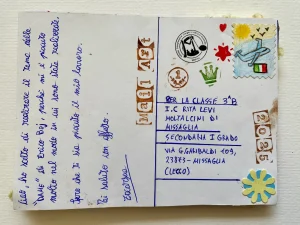 Ciao, ho scelto di realizzare il rame delle
"DAME" di Enrico Baj, perché mi è piaciuto
molto nel modo in cui sono state realizzate.
Spero che ti sia piaciuto il mio lavoro.
Ti saluto con affetto.
Mail Art
PER LA CLASSE 3ªB
I.C RITA LEVI
MONTALCINI DI
MISSAGLIA
SECONDARIA I GRADO
VIA G.GARIBALDI 109,
23873-MISSAGLIA
(LECCO)
2025